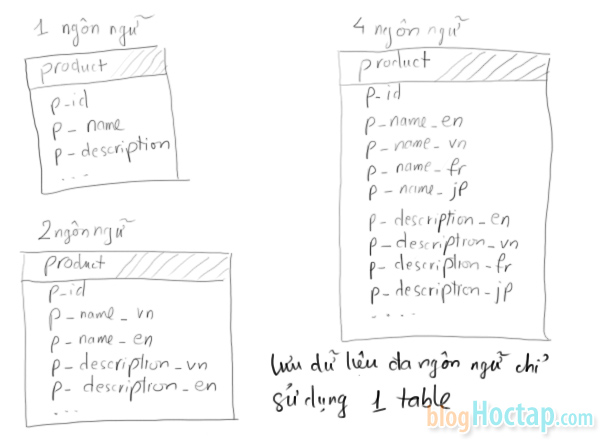 1 ngôn ngữ
product
p-id
p-name
p-description
...
2 ngôn ngữ
product
p-id
p-name-vn
p-name-en
p-description-vn
p-description-en
...
4 ngôn ngữ
product
p-id
p-name-en
p-name-vn
p-name-fr
p-name-jp
p-description-en
p-description-vn
p-description-fr
p-description-jp
....
lưu dữ liêu đa ngôn ngữ chỉ
sử dụng 1 table
blogHoctap.com